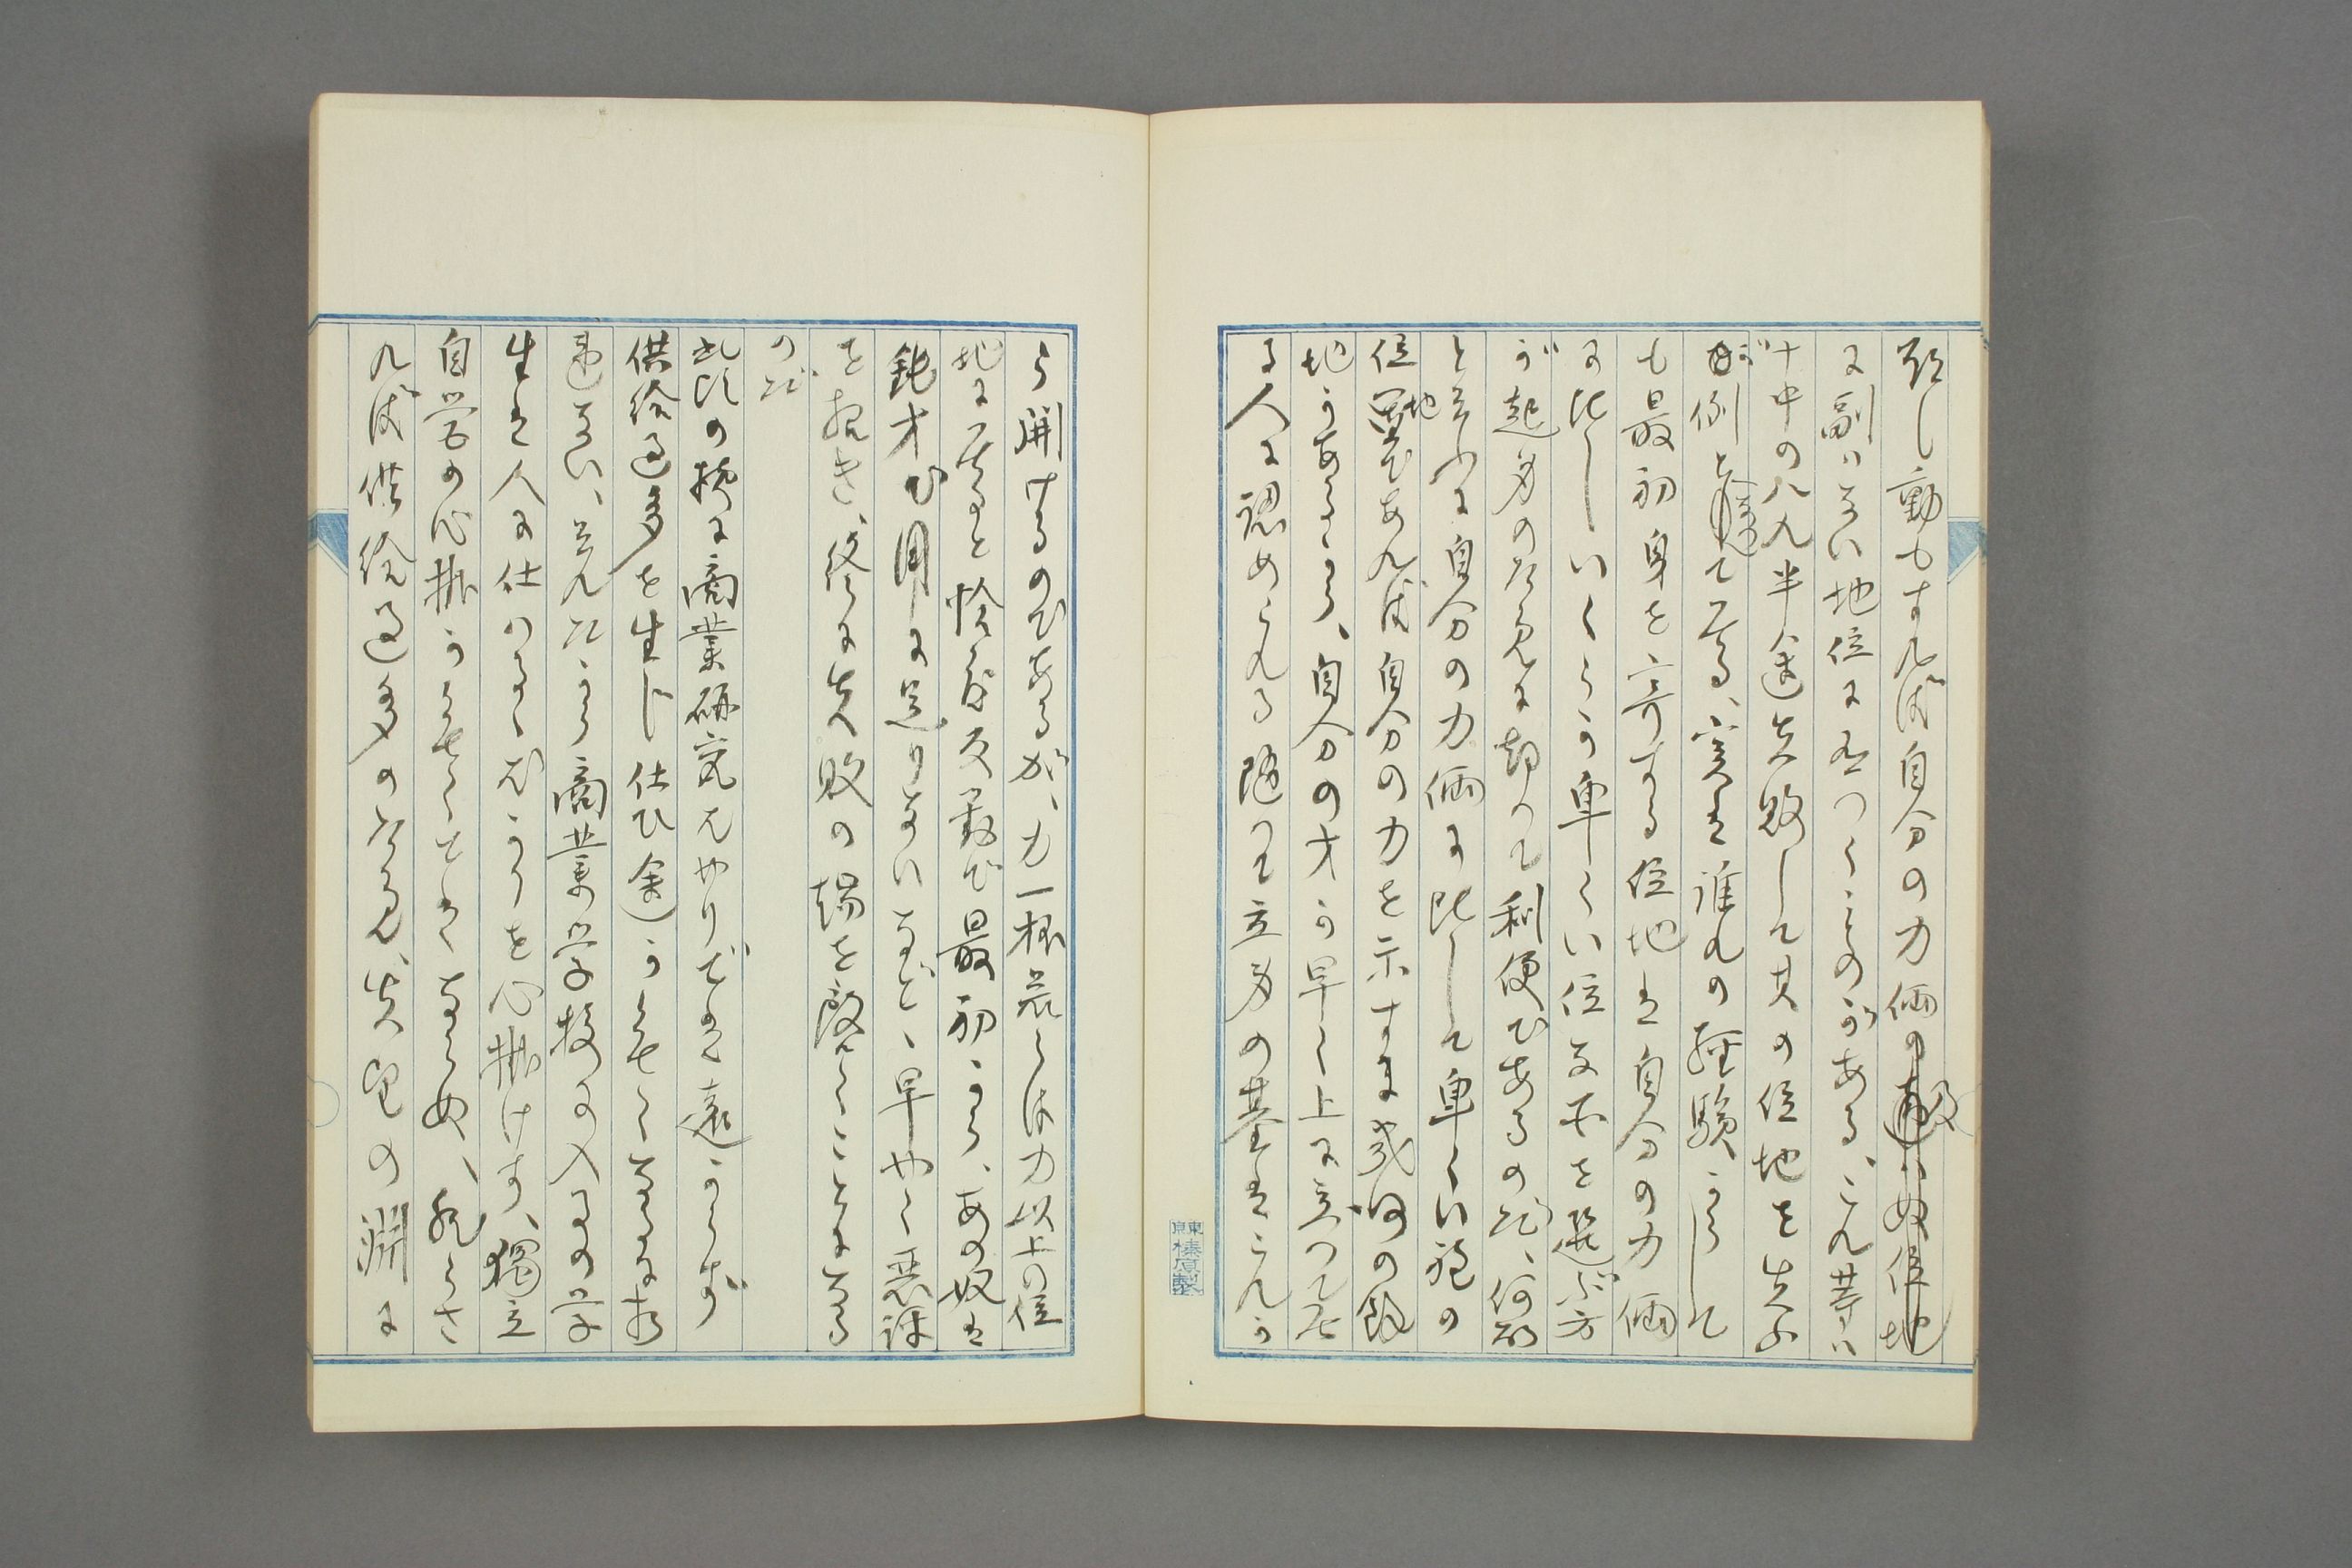 し動もすれば自分の力倆の
に副はない地位に立つくものがある、これ等は
十中の八九半途失敗して其の位地を失ふ
が例となつて居る、実は誰れの経験からして
も最初身を寄する位地は自分の力倆
に比しいくらか卑くい位な所を選ぶ方
が起身のために却つて利便であるのだ、何故
と云ふに自分の力倆に比して卑くい程の
位地であれば自分の力を示すに幾何の餘
地があるから、自分の才が早く上に立つて居
る人に認められる随つて立身の基はこれか
ら開けるのであるが、力一杯若しくは力以上の位
地に居ると恰度反対で最初から、あの奴は
鈍才で用に足りないなど、早やく悪評
を招き、終に失敗の場を踏むことになる
のだ
此頃の様に商業研究ばやりでは遠からず
供給過多を生じ仕ひ余りがせらるるに相
違ない、それだから商業学校の入るの学
生は人に仕はるるばかりを心掛けず、獨立
自営の心掛がなくてはならぬ、然らざ
れば供給過多のために失望の淵に
東京榛原製